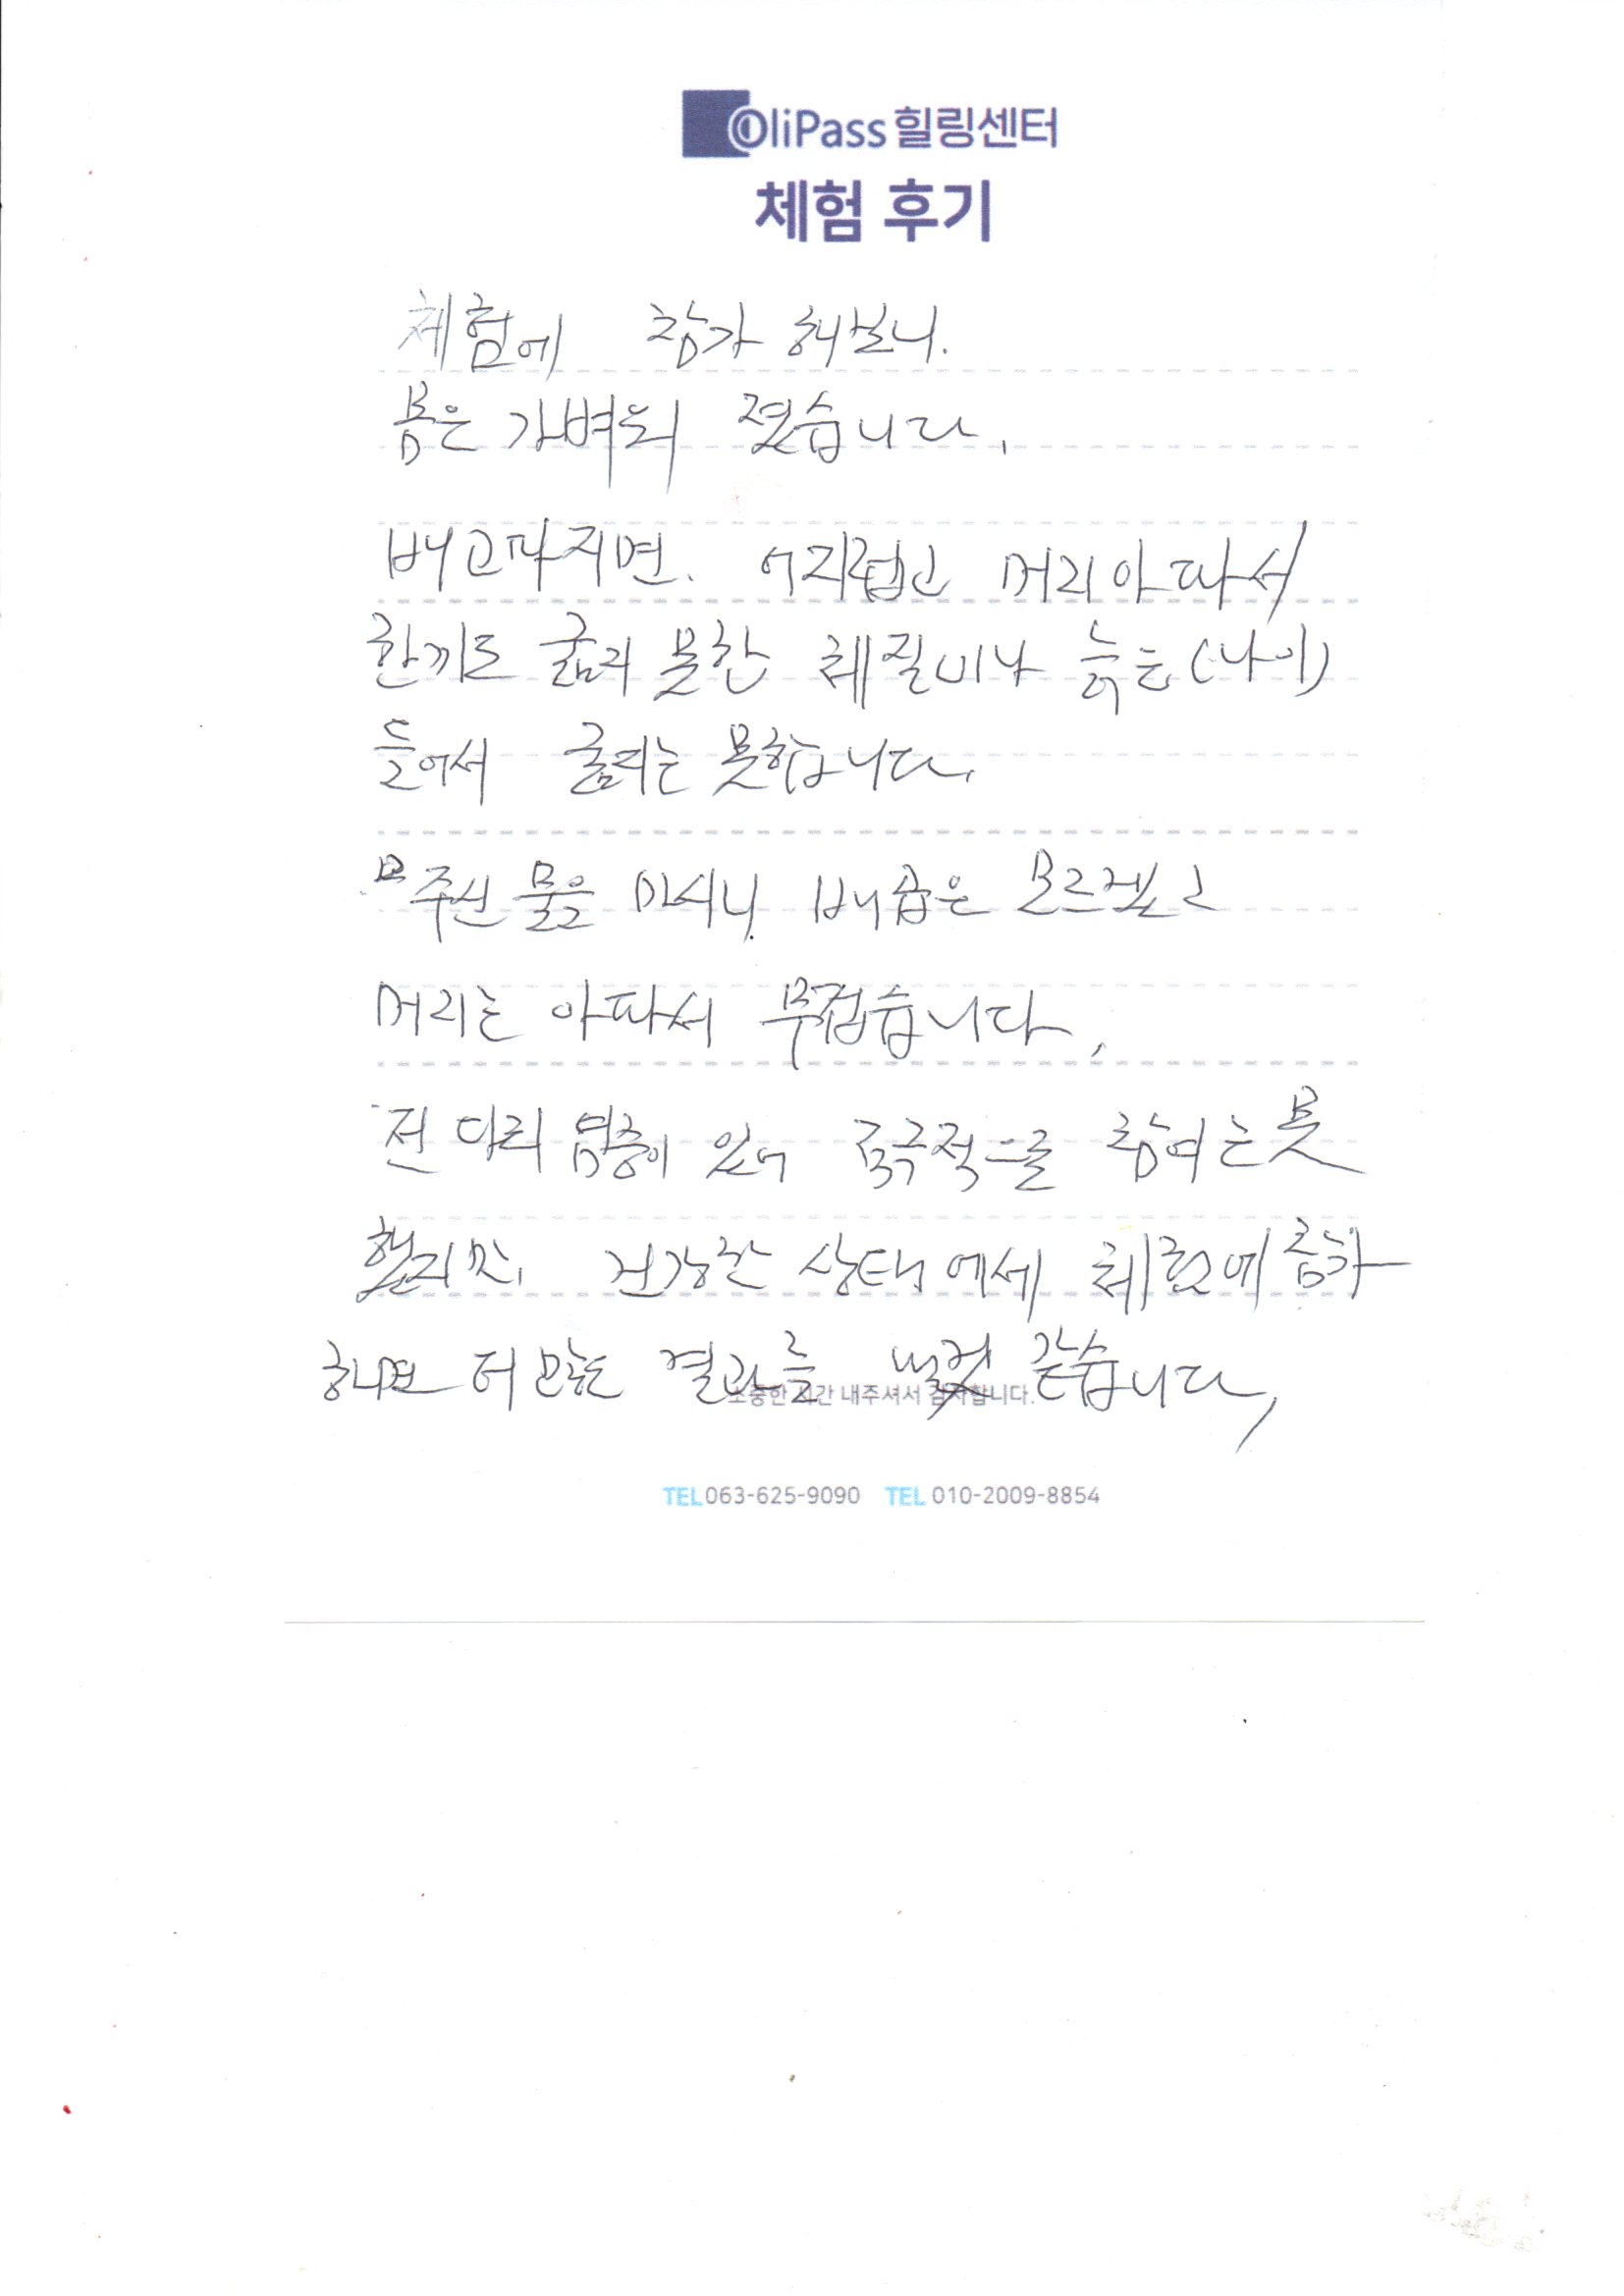 OliPass 힐링센터
체험 후기
체험에 참가 해보니.
몸은 가벼워 졌습니다.
배고파지면. 어지럽고 머리아파서
한끼도 굶지 못한 체질이나 늙은(나이)
들어서 굶지는 못합니다.
주신 물을 마시니. 배곺은 모르겠고
머리는 아파서 무겁습니다.
전 다리 염증이 있어 적극적으로 참여는 못
했지만. 건강한 상태에서 체험에 참가
하면 더 많은 결과를 같습니다.
소중한 시간 내주셔서 감사합니다.
TEL 063-625-9090 TEL 010-2009-8854